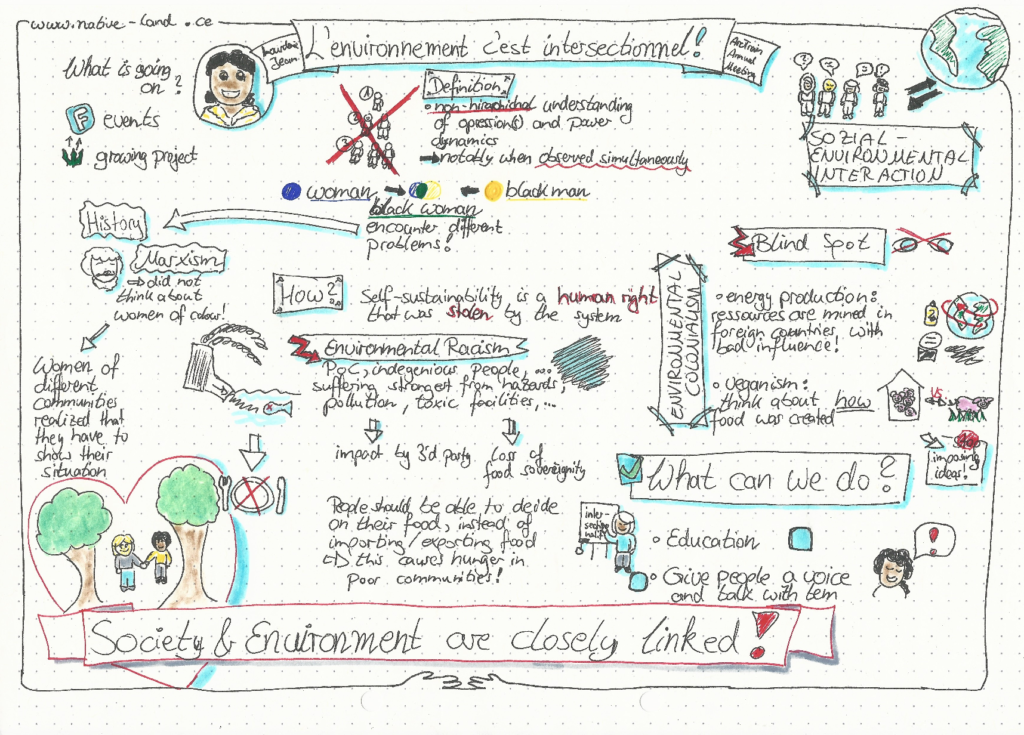 www.native-land.ce
What is going
on?
F events
growing project
Lourdenie
Jean
L'environnement c'est intersectionnel!
ArcTrain
Annual
Meeting
Definition
non-hirachichal understanding
of opression(s) and power
dynamics
notably when observed simultaneously
woman
black man
black woman
encounter different
problems!
SOZIAL-
ENVIRONMENTAL
INTERACTION
History
Marxism
did not
think about
women of colour!
Women of
different
communities
realized that
they have to
show their
situation
How?
Self-sustainability is a human right
that was stolen by the system
Environmental Racism
PoC, indegenious people, ...
suffering strongest from hazards,
pollution, toxic facilities, ...
impact by 3d party
Loss of
food sovereignity
People should be able to decide
on their food, instead of
importing/exporting food
this causes hunger in
poor communities!
ENVIRONMENTAL
COLONIALISM
Blind Spot
energy production:
ressources are mined in
foreign countries, with
bad influence!
Veganism:
think about how
food was created
VS
Stop
imposing
ideas!
What can we do?
inter-
sectio-
nality
Education
Give people a voice
and talk with tem
!
Society & Environment are closely linked!